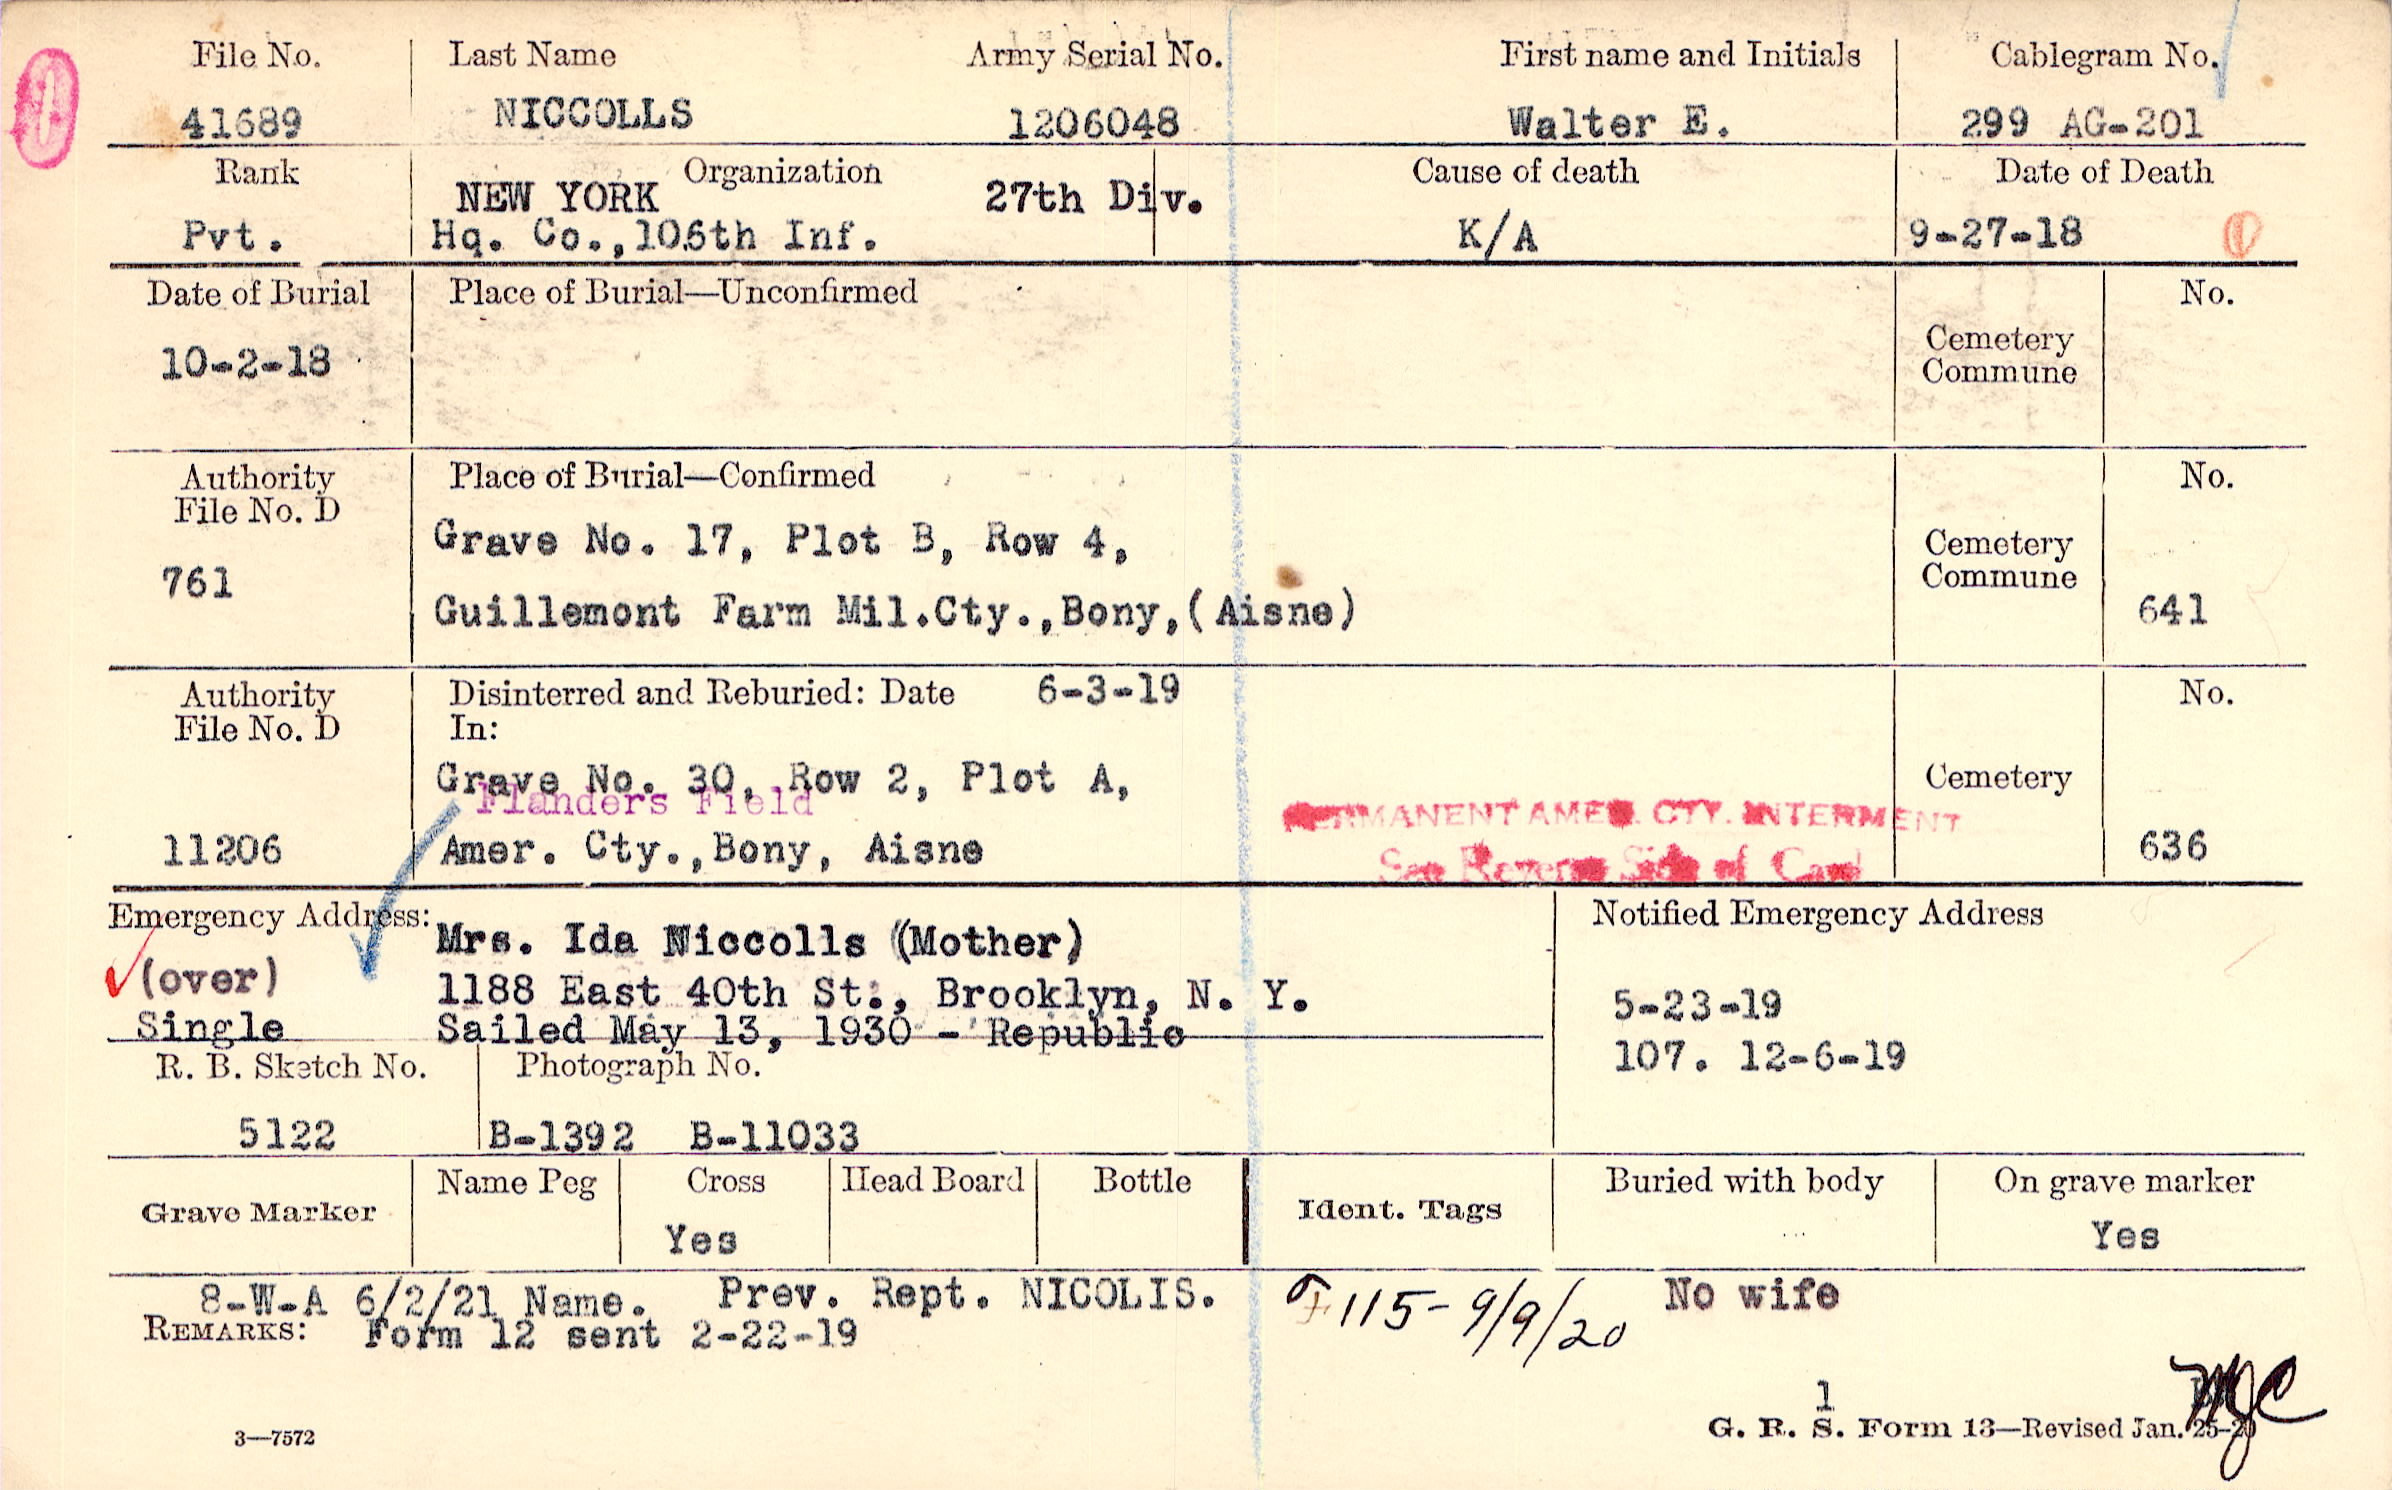 File No. Last Name Army Serial No. First name and Initials Cablegram No.
41689 NICCOLLS 1206048 Walter E. 299 AG-201
Rank Organization Cause of death Date of Death
NEW YORK 27th Div.
Pvt. Hq. Co.,106th Inf. K/A 9-27-18
Date of Burial Place of Burial—Unconfirmed No.
Cemetery
Commune
10-2-18
Authority Place of Burial—Confirmed No.
File No. D
Grave No. 17, Plot B, Row 4, Cemetery
Commune
761
Guillemont Farm Mil.Cty.,Bony,(Aisne) 641
Authority Disinterred and Reburied: Date 6-3-19 No.
File No. D In:
Grave No. 30, Row 2, Plot A, Cemetery
Flanders Field
PERMANENT AMER. CTY. INTERMENT
11206 Amer. Cty.,Bony, Aisne 636
See Reverse Side of Card
Emergency Address: Mrs. Ida Niccolls (Mother) Notified Emergency Address
(over) 1188 East 40th St., Brooklyn, N. Y. 5-23-19
Single Sailed May 13, 1930 - Republic
107. 12-6-19
R. B. Sketch No. Photograph No.
5122 B-1392 B-11033
Grave Marker Name Peg Cross Head Board Bottle Ident. Tags Buried with body On grave marker
Yes Yes
8-W-A 6/2/21 Name. Prev. Rept. NICOLIS. 115-9/9/20 No wife
REMARKS: Form 12 sent 2-22-19
1
3—7572 G. R. S. Form 13—Revised Jan.